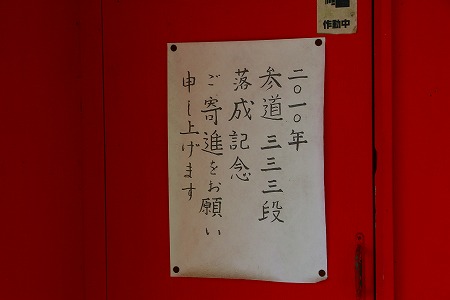 二〇一〇年
参道 三三三段
落成記念
ご寄進をお願い
申し上げます
作動中